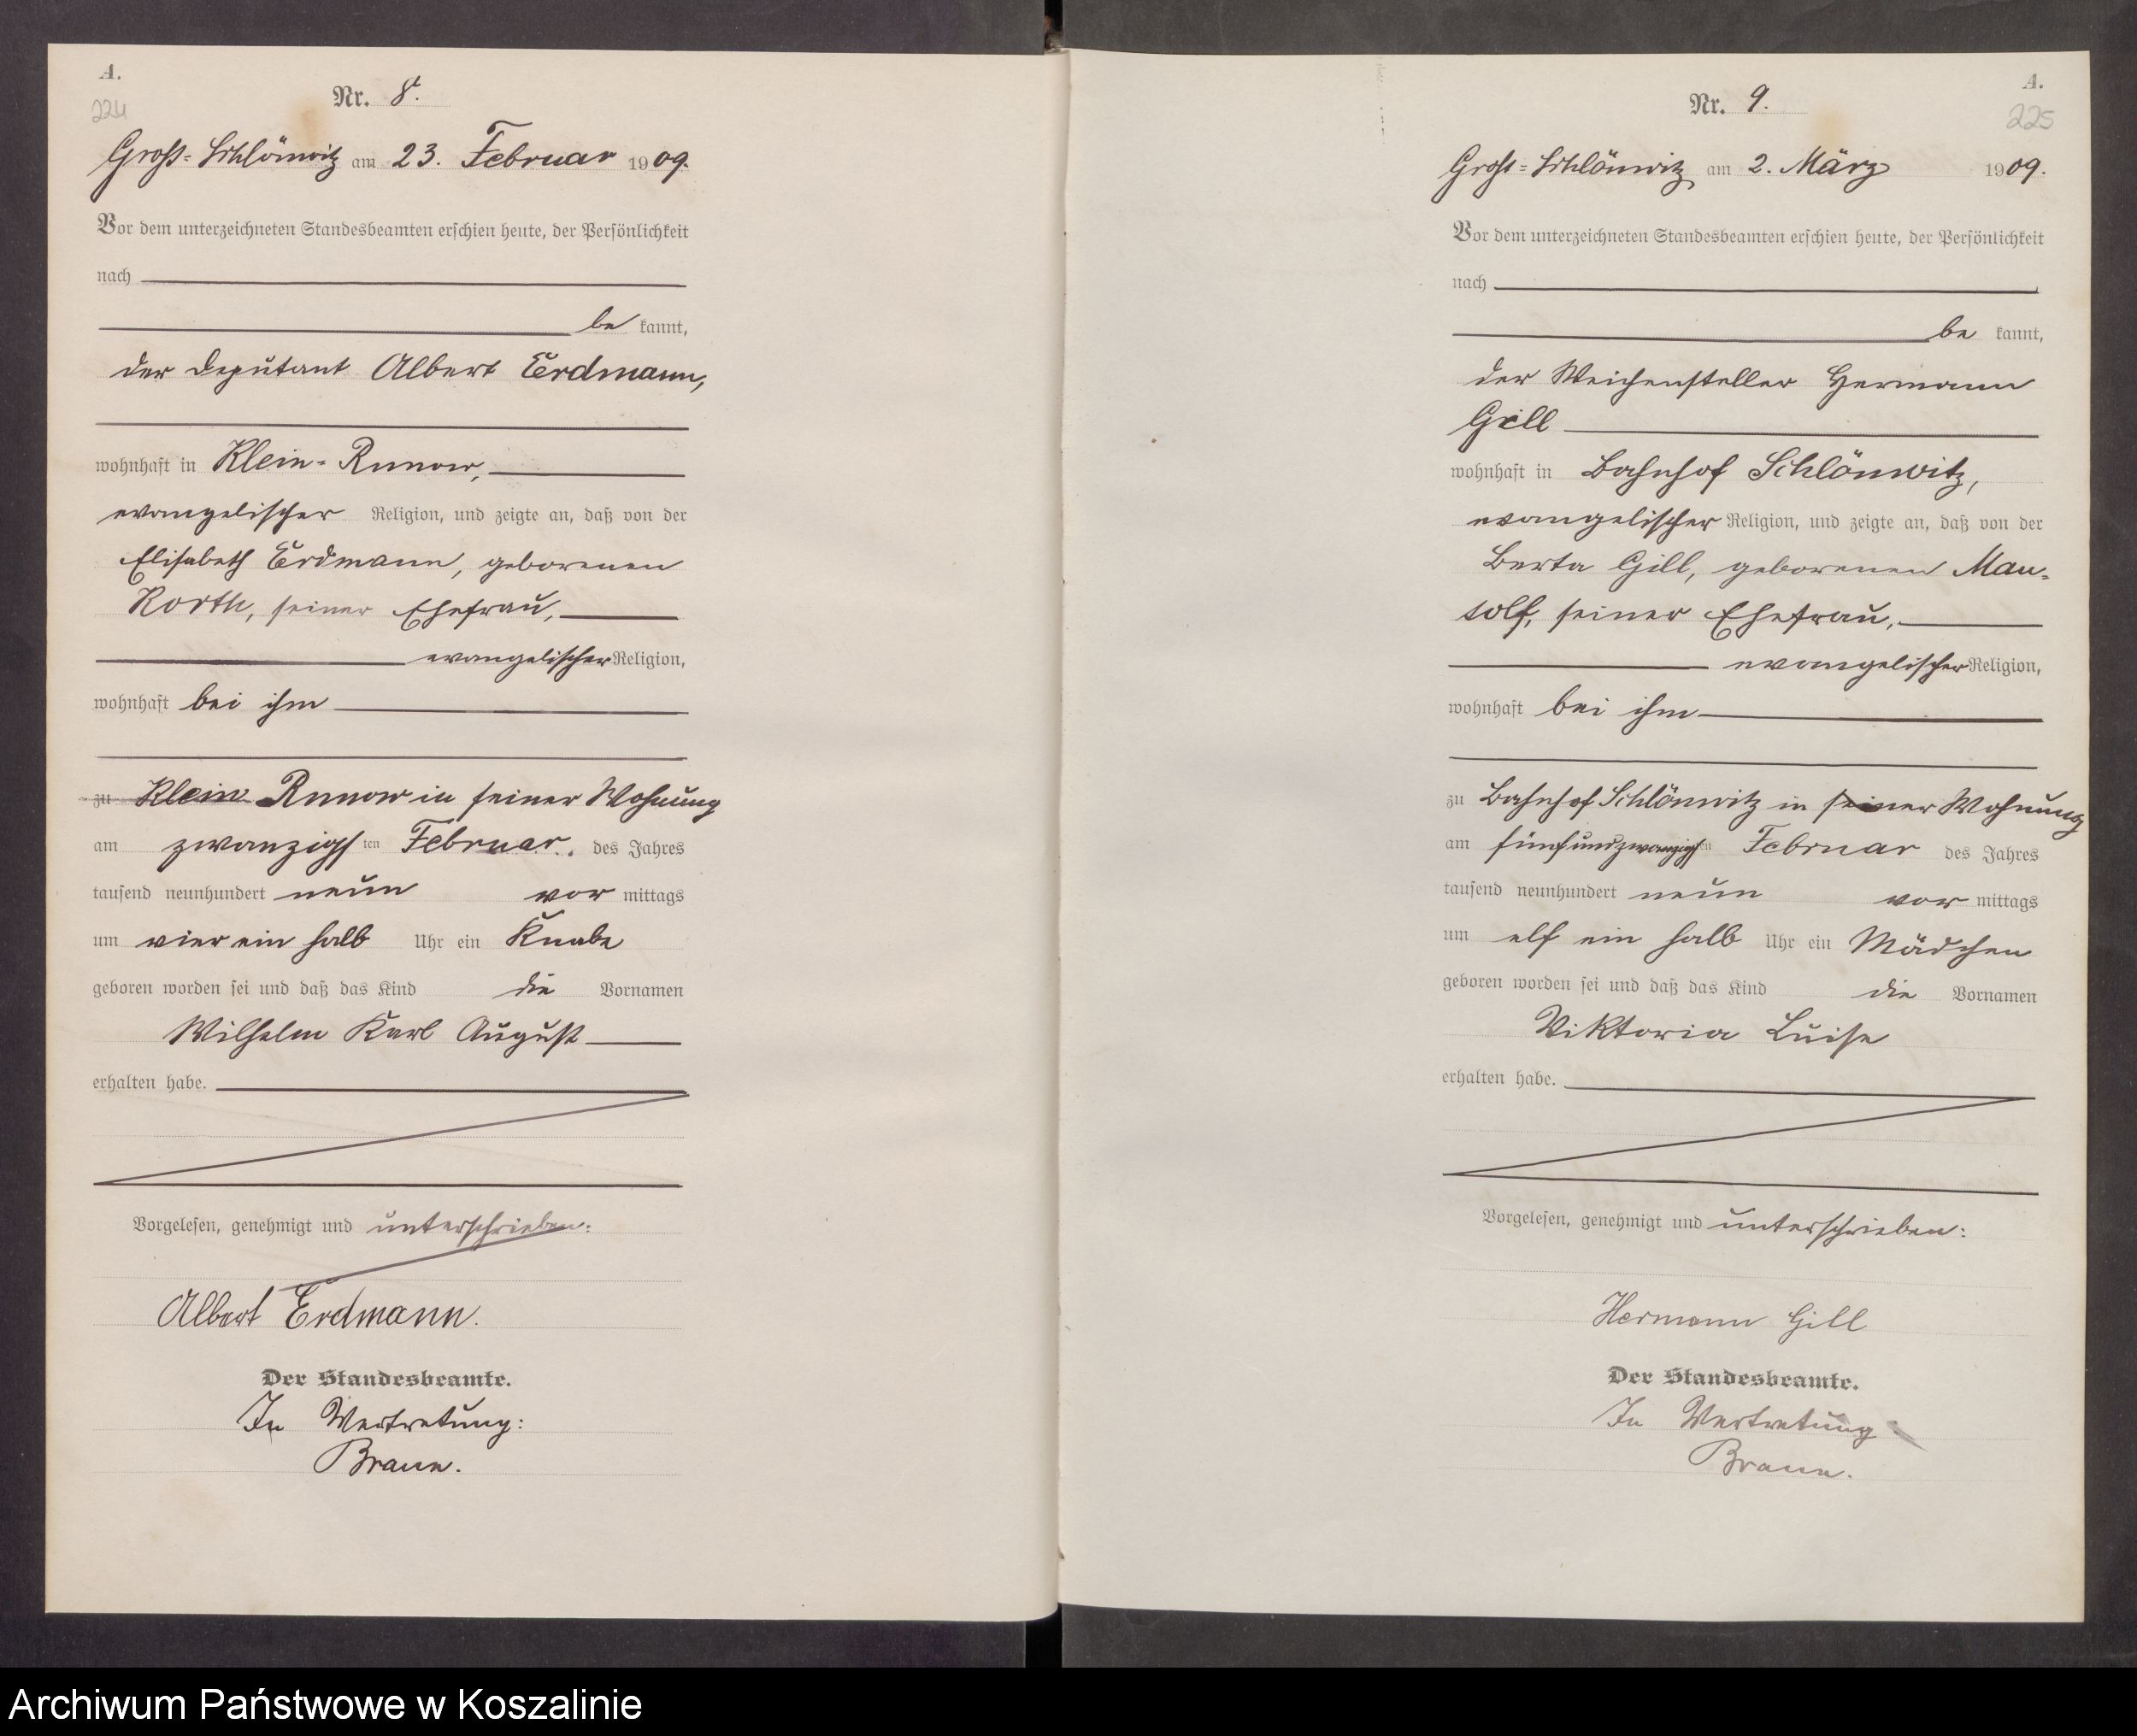 A.
224
Nr. 8.
Gross-Schlönwitz am 23. Februar 1909.
Vor dem unterzeichneten Standesbeamten erschien heute, der Persönlichkeit
nach
be kannt,
der Deputant Albert Erdmann,
wohnhaft in Klein-Runow,
evangelischer Religion, und zeigte an, daß von der
Elisabeth Erdmann, geborenen
Korth, seiner Ehefrau,
evangelischer Religion,
wohnhaft bei ihm
zu Klein Runow in seiner Wohnung
am zwanzigsten Februar. des Jahres
tausend neunhundert neun vor mittags
um vier ein halb Uhr ein Knabe
geboren worden sei und daß das Kind die Vornamen
Wilhelm Karl August
erhalten habe.
Vorgelesen, genehmigt und unterschrieben:
Albert Erdmann.
Der Standesbeamte.
In Vertretung:
Braun.
A.
225
Nr. 9.
Gross-Schlönwitz am 2. März 1909.
Vor dem unterzeichneten Standesbeamten erschien heute, der Persönlichkeit
nach
be kannt,
der Weichensteller Hermann
Gill
wohnhaft in Bahnhof Schlönwitz,
evangelischer Religion, und zeigte an, daß von der
Berta Gill, geborenen Man-
tolf, seiner Ehefrau,
evangelischer Religion,
wohnhaft bei ihm
zu Bahnhof Schlönwitz in seiner Wohnung
am fünfundzwanzigsten Februar des Jahres
tausend neunhundert neun vor mittags
um elf ein halb Uhr ein Mädchen
geboren worden sei und daß das Kind die Vornamen
Viktoria Luise
erhalten habe.
Vorgelesen, genehmigt und unterschrieben:
Hermann Gill
Der Standesbeamte.
In Vertretung
Braun.
Archiwum Państwowe w Koszalinie